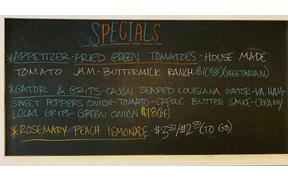 SPECIALS
*APPETIZER-FRIED GREEN TOMATOES-HOUSE MADE
TOMATO JAM-BUTTERMILK RANCH $10(GF)(VEGETARIAN)
*GATOR & GRITS-CAJUN SEARED LOUISIANA GATOR-VA. HAM-
SWEET PEPPERS ONION-TOMATO-CREOLE BUTTER SAUCE-CREAMY
LOCAL GRITS-GREEN ONION $18(GF)
*ROSEMARY PEACH LEMONADE-$3.50/$2.50(TO GO)